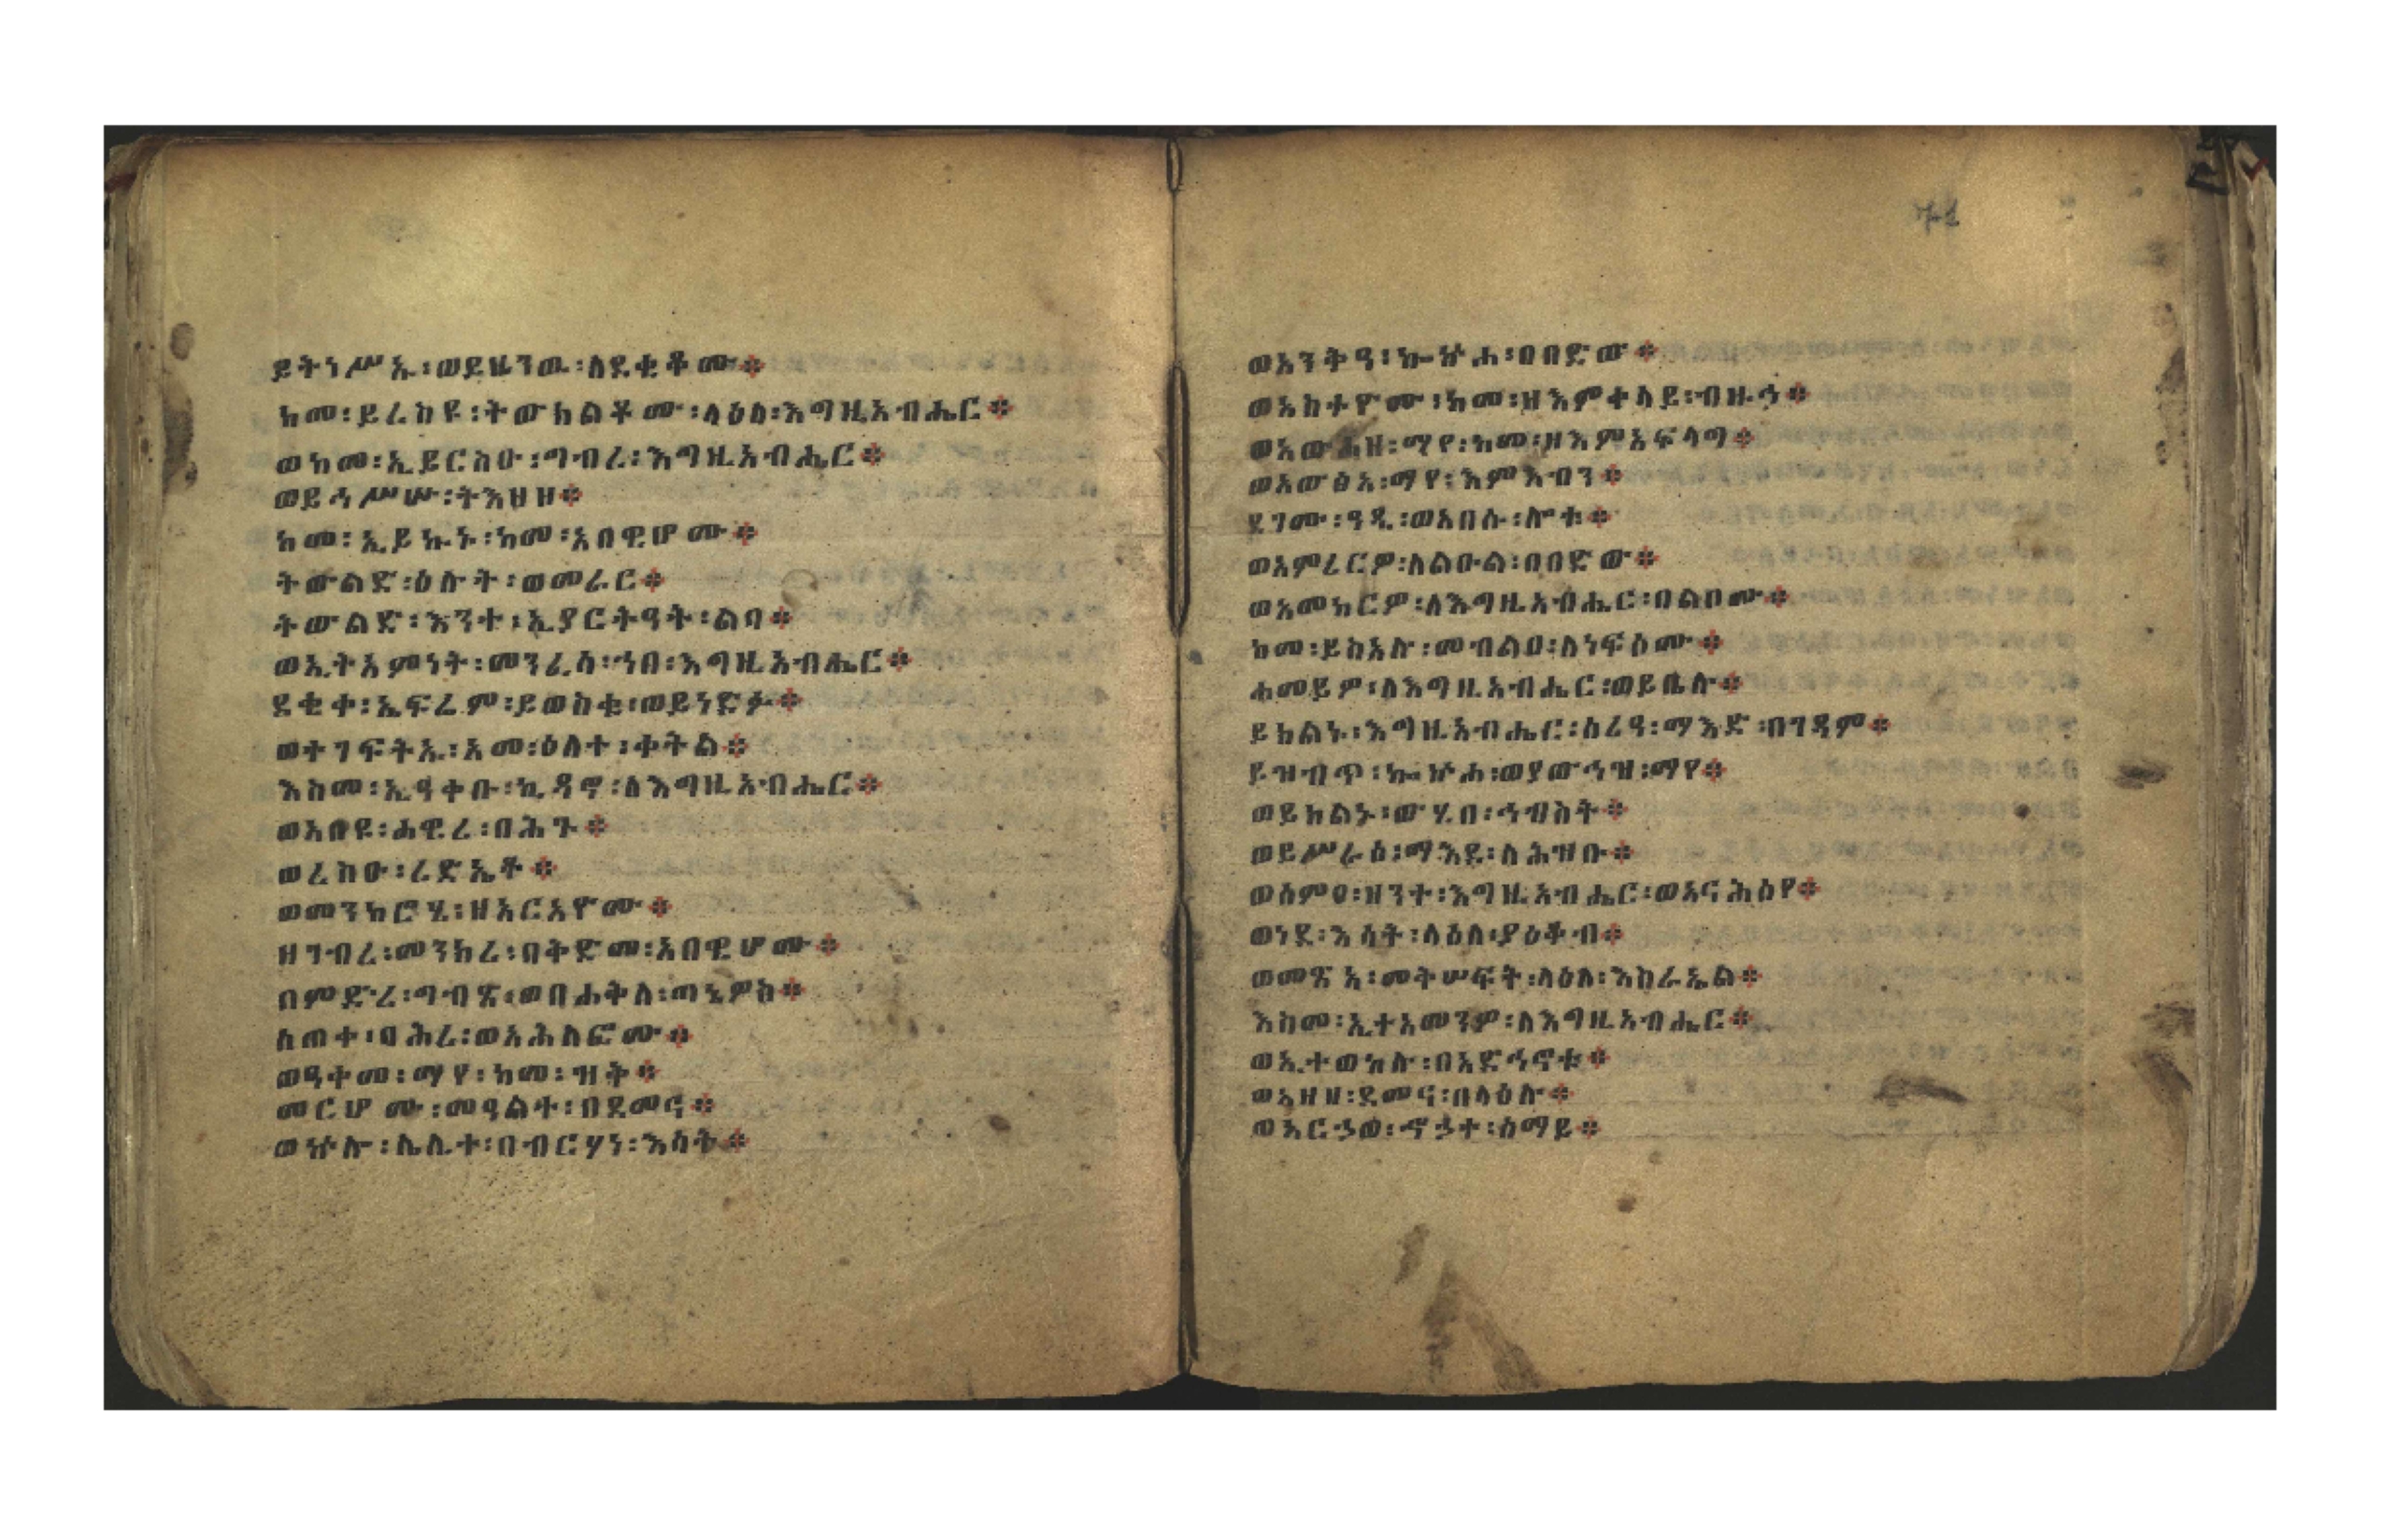 ይትነሥኡ፡ወይዜንዉ፡ለደቂቆሙ።
ከመ፡ይረስዩ፡ትውክልቶሙ፡ላዕለ፡እግዚአብሔር።
ወከመ፡ኢይርስዑ፡ግብረ፡እግዚአብሔር።
ወይኅሥሡ፡ትእዘዘ።
ከመ፡ኢይኩኑ፡ከመ፡አበዊሆሙ።
ትውልድ፡ዕሉት፡ወመራር።
ትውልድ፡እንተ፡ኢያርትዓት፡ልባ።
ወኢትአምነት፡መንፈሳ፡ኀበ፡እግዚአብሔር።
ደቂቀ፡ኤፍሬም፡ይወስቁ፡ወይነድፉ።
ወተገፍትኡ፡አመ፡ዕለተ፡ቀትል።
እስመ፡ኢዓቀቡ፡ኪዳኖ፡ለእግዚአብሔር።
ወአበዩ፡ሐዊረ፡በሕጉ።
ወረስዑ፡ረድኤቶ።
ወመንክሮሂ፡ዘአርአዮሙ።
ዘገብረ፡መንክረ፡በቅድመ፡አበዊሆሙ።
በምድረ፡ግብጽ፡ወበሐቅለ፡ጣኔዎስ።
ሰጠቀ፡ባሕረ፡ወአሕለፎሙ።
ወዓቀመ፡ማየ፡ከመ፡ዝቅ።
መርሆሙ፡መዓልተ፡በደመና።
ወኵሉ፡ሌሊተ፡በብርሃነ፡እሳት።
ወአንቅዓ፡ኰኵሐ፡በበድው።
ወአስተዮሙ፡ከመ፡ዘእምቀላይ፡ብዙኅ።
ወአውሐዘ፡ማየ፡ከመ፡ዘእምአፍላግ።
ወአውፅአ፡ማየ፡እምእብን።
ደገሙ፡ዓዲ፡ወአበሱ፡ሎቱ።
ወአምረርዎ፡ለልዑል፡በበድው።
ወአመከርዎ፡ለእግዚአብሔር፡በልቦሙ።
ከመ፡ይስአሉ፡መብልዐ፡ለነፍሶሙ።
ሐመይዎ፡ለእግዚአብሔር፡ወይቤሉ።
ይክልኑ፡እግዚአብሔር፡ሰሪዓ፡ማእድ፡በገዳም።
ይዝብጥ፡ኰኵሐ፡ወያውኅዝ፡ማየ።
ወይክልኑ፡ውሂበ፡ኅብስት።
ወይሥራዕ፡ማእደ፡ለሕዝቡ።
ወሰምዐ፡ዘንተ፡እግዚአብሔር፡ወአናሕሰየ።
ወነደ፡እሳት፡ላዕለ፡ያዕቆብ።
ወመጽአ፡መቅሠፍት፡ላዕለ፡እስራኤል።
እስመ፡ኢተአመንዎ፡ለእግዚአብሔር።
ወኢተወከሉ፡በአድኅኖቱ።
ወአዘዘ፡ደመና፡በላዕሉ።
ወአርኃወ፡ኆኃተ፡ሰማይ።
71